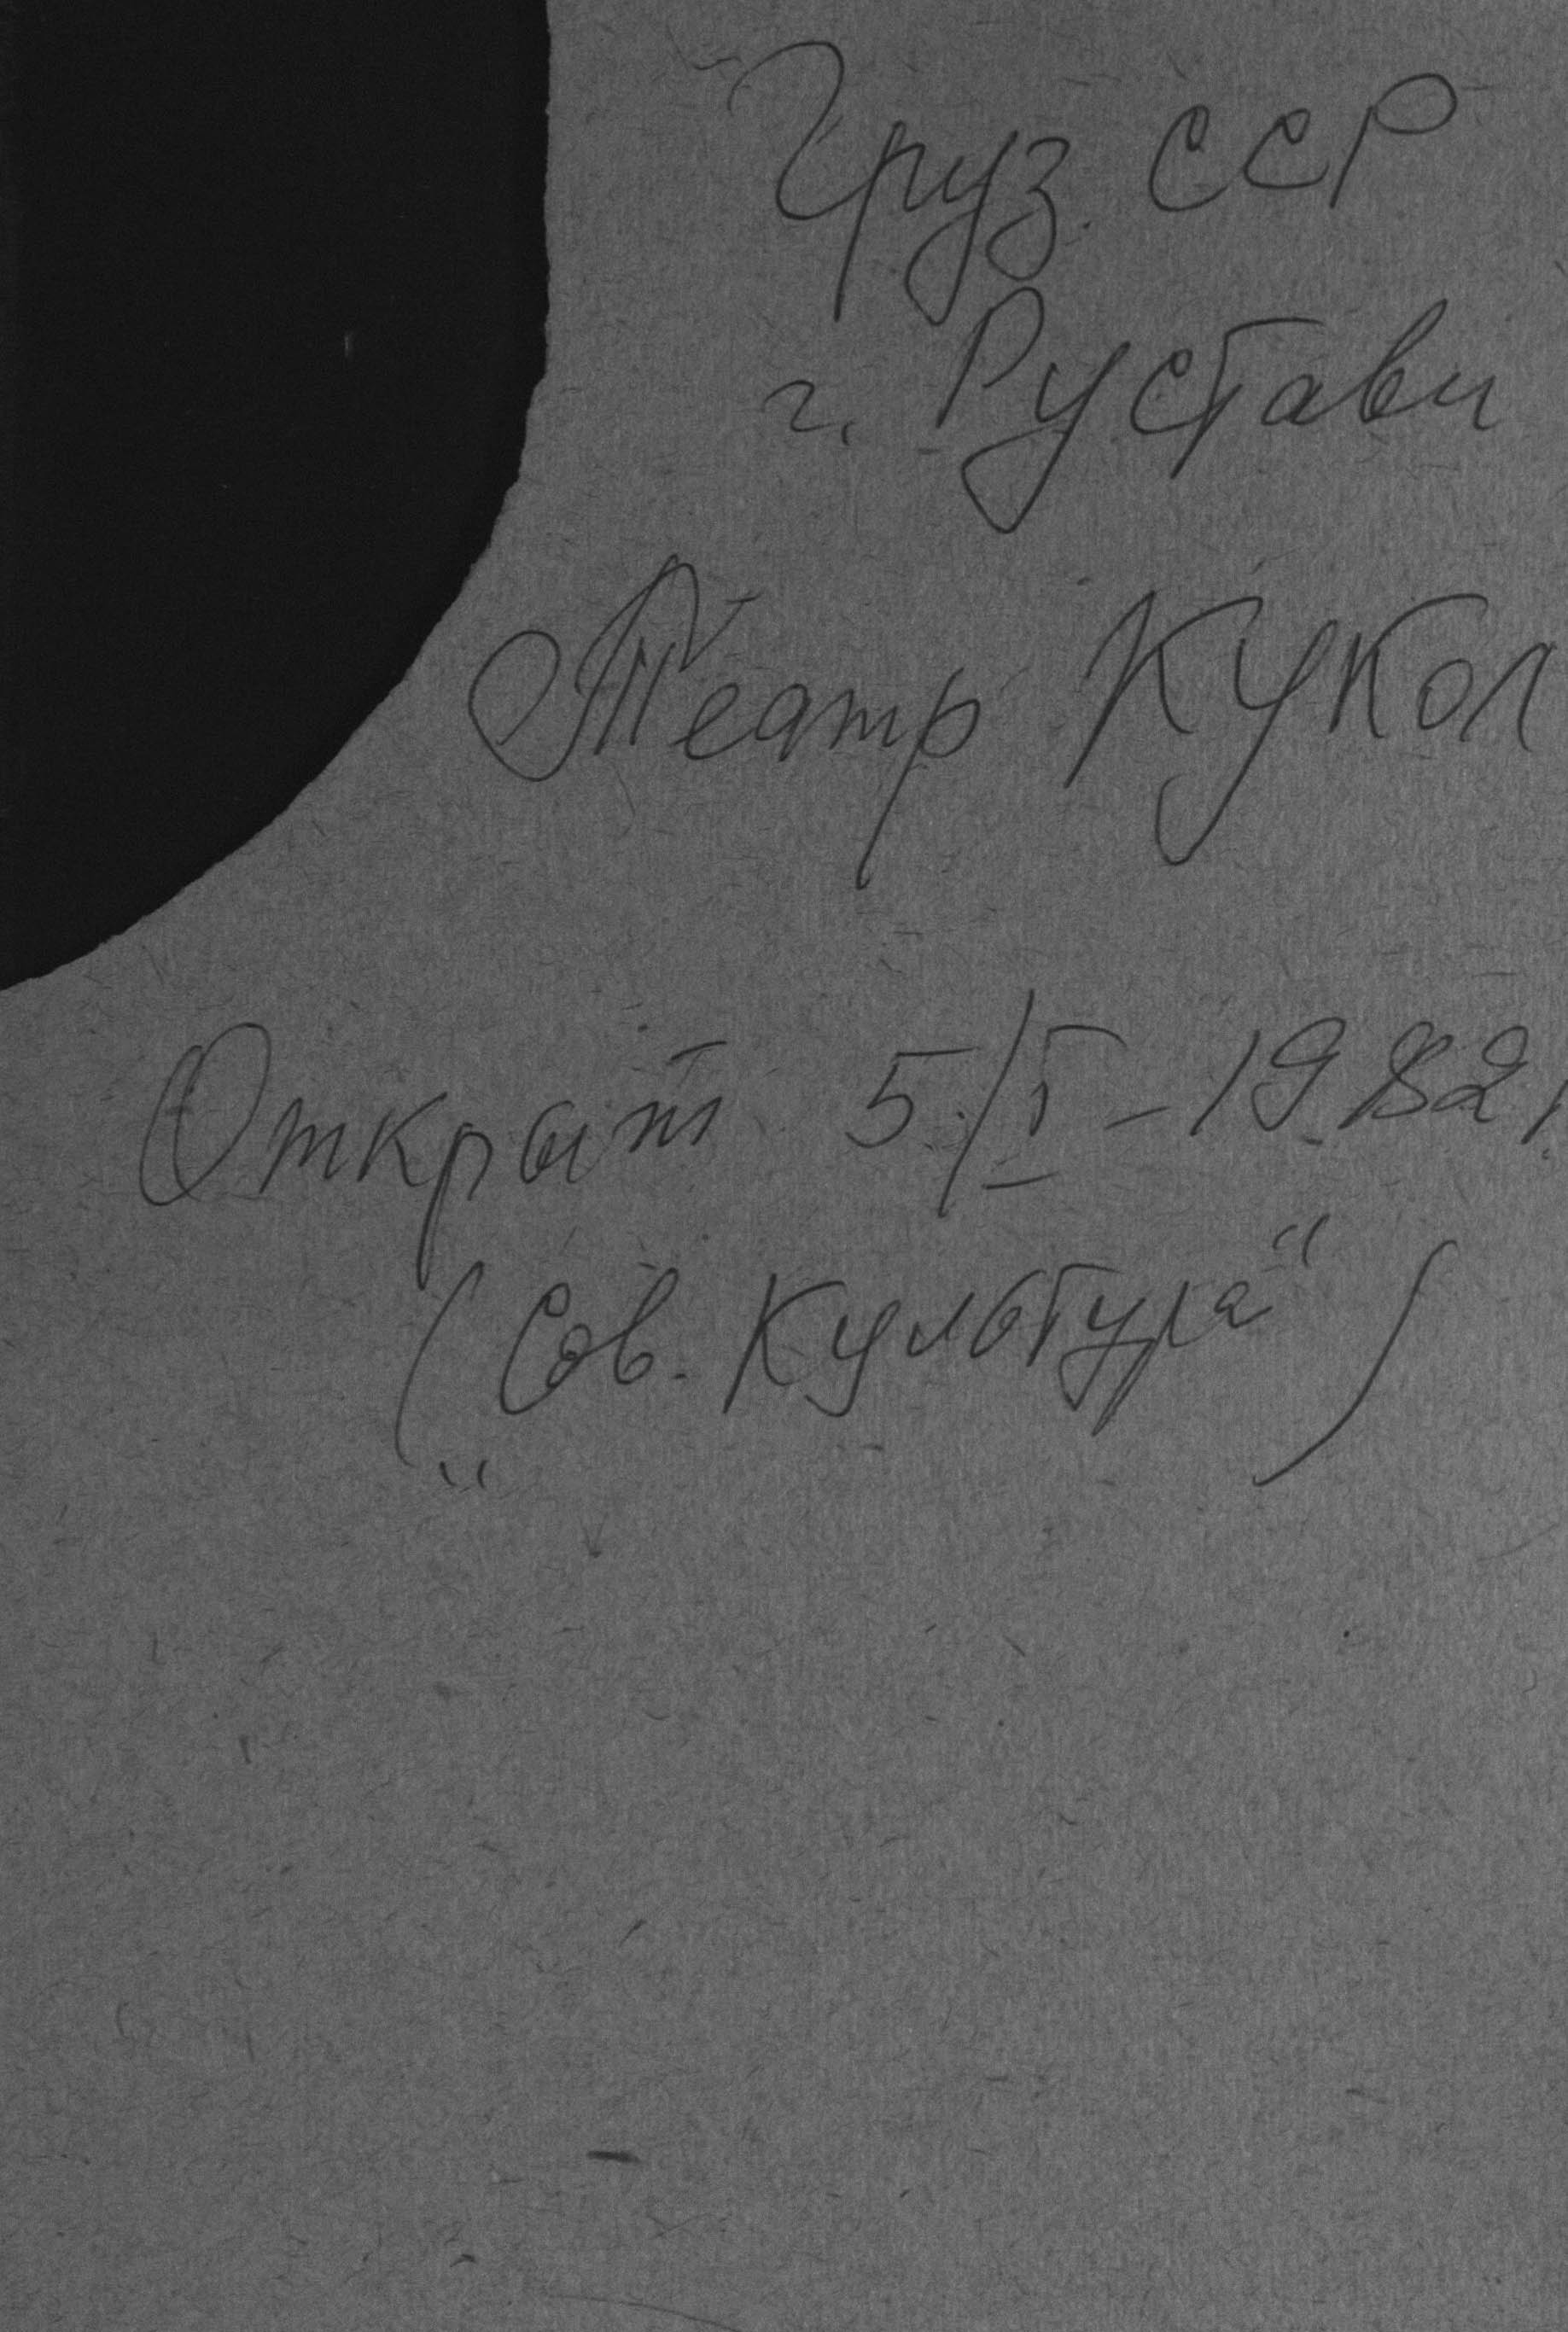 Груз. ССР
г. Рустави
Театр Кукол
Открыт 5/I-1982г.
("Сов. Культура")